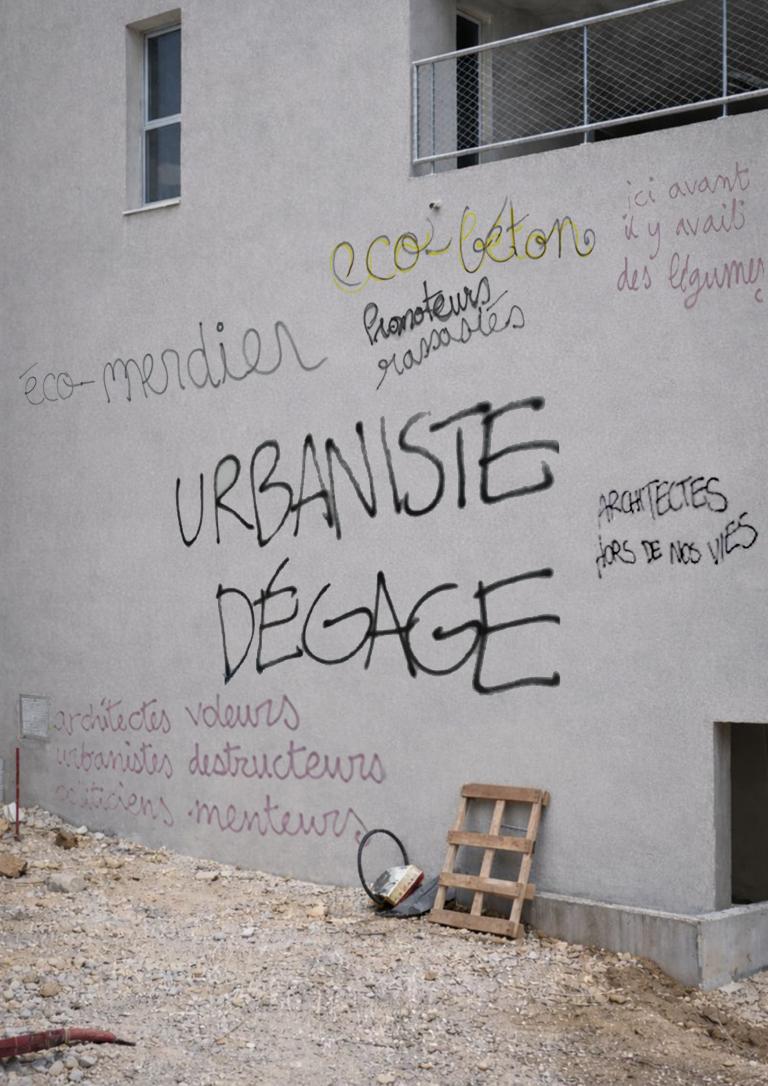 ici avant
il y avait
des légumes
eco-béton
Promoteurs
rassasiés
éco-merdier
URBANISTE
DÉGAGE
ARCHITECTES
HORS DE NOS VIES
architectes voleurs
urbanistes destructeurs
politiciens menteurs